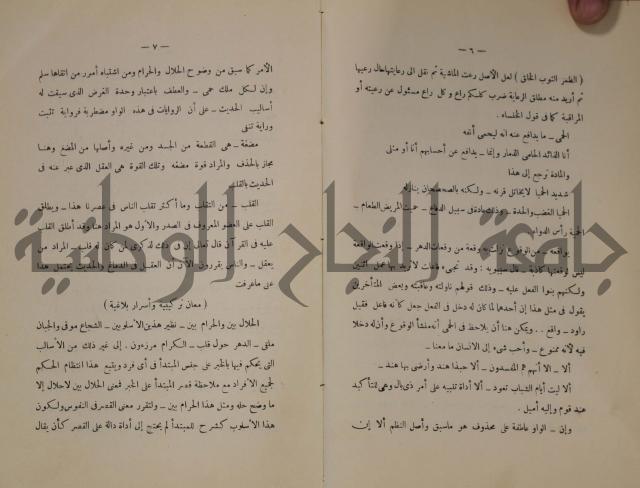 — ٦ —
( الطمر الثوب الخلق ) لعل الأصل رعت الماشية ثم نقل إلى رعايتها حال رعيها
ثم أريد منه مطلق الرعاية ضرب كلكم راع وكل راع مسئول عن رعيته أو
المراقبة كما فى قول الخنساء .
الحمى ـ ما يدافع عنه انه ليحمى أنفه
أنا الذائد الحامى الذمار وإنما ـ يدافع عن أحسابهم أنا أو مثلى
والمادة ترجع إلى هذا
شديد الحميا لا يخاتل قرنه ـ ولكنه بالصحصحان ينازله
الحميا الغضب والحدة ـ وذلك يلاقى سبيل الدفاع ـ حميت المريض الطعام ـ
الحمية رأس الدواء
يواقعه ـ من الوقوع
ليس لوقعتها كاذبة ـ قال سيبويه : وقد تجىء فاعلت لا تريد بها عمل اثنين
ولكنهم بنوا الفعل عليه ـ وذلك قولهم ناولته وعاقبته وبعض المتأخرين
يقول فى مثل هذا إن أحدهما لما كان له دخل فى الفعل جعل كأنه فاعل فقيل
راود ـ واقع .. ويمكن هنا أن يلاحظ فى الحمى أنه منشأ الوقوع وأن له دخلا
فيه لأنه ممنوع ـ وأحب شىء إلى الانسان ما منعا ـ
ألا ـ ألا أنهم هم المفسدون ـ ألا حبذا هند وأرض بها هند ـ
ألا ليت أيام الشباب تعود ـ ألا أداة تنبيه على أمر ذى بال وهى للتأكيد
عند قوم وإليه أميل .
وإن ـ الواو عاطفة على محذوف هو ما سبق وأصل النظم ألا إن
— ٧ —
الأمر كما سبق من وضوح الحلال والحرام ومن اشتباه أمور من اتقاها سلم
وإن لكل ملك حمى ـ والعطف باعتبار وحدة الغرض الذى سيقت له
أساليب الحديث ـ على أن الروايات فى هذه الواو مضطربة فرواية تثبت
ورواية تنفى
مضغة ـ هى القطعة من الجسد ومن غيره وأصلها من المضغ وهنا
مجاز بالحذف والمراد قوة مضغة وتلك القوة هى العقل الذى عبر عنه فى
الحديث بالقلب
القلب ـ من التقلب وما أكثر تقلب الناس فى عصرنا هذا ـ ويطلق
القلب على العضو المعروف فى الصدر والأول هو المراد هنا وقد أطلق القلب
عليه فى القرآن قال تعالى إن فى ذلك لذكرى لمن كان له قلب ـ المراد من
يعقل ـ والناس يقررون الآن أن العقل فى الدماغ والحديث يحتمل هذا
على ما عرفت
( معان تركيبية وأسرار بلاغية )
الحلال بين والحرام بين ـ نظير هذين الأسلوبين ـ الشجاع موقى والجبان
ملقى ـ الدهر حول قلب ـ الكرام مرزءون . إلى غير ذلك من الأساليب
التى يحكم فيها بالخبر على جنس المبتدأ فى أى فرد ويقع هذا انتظام الحكم
لجميع الأفراد مع ملاحظة قصر المبتدأ على الخبر فمعنى الحلال بين لا حلال إلا
ما وضح حله ومثل هذا الحرام بين ـ ولتقرر معنى القصر فى النفوس ولكون
هذا الأسلوب كشرح للمبتدأ لم يحتج إلى أداة دالة على القصر كأن يقال
جامعة النجاح الوطنية